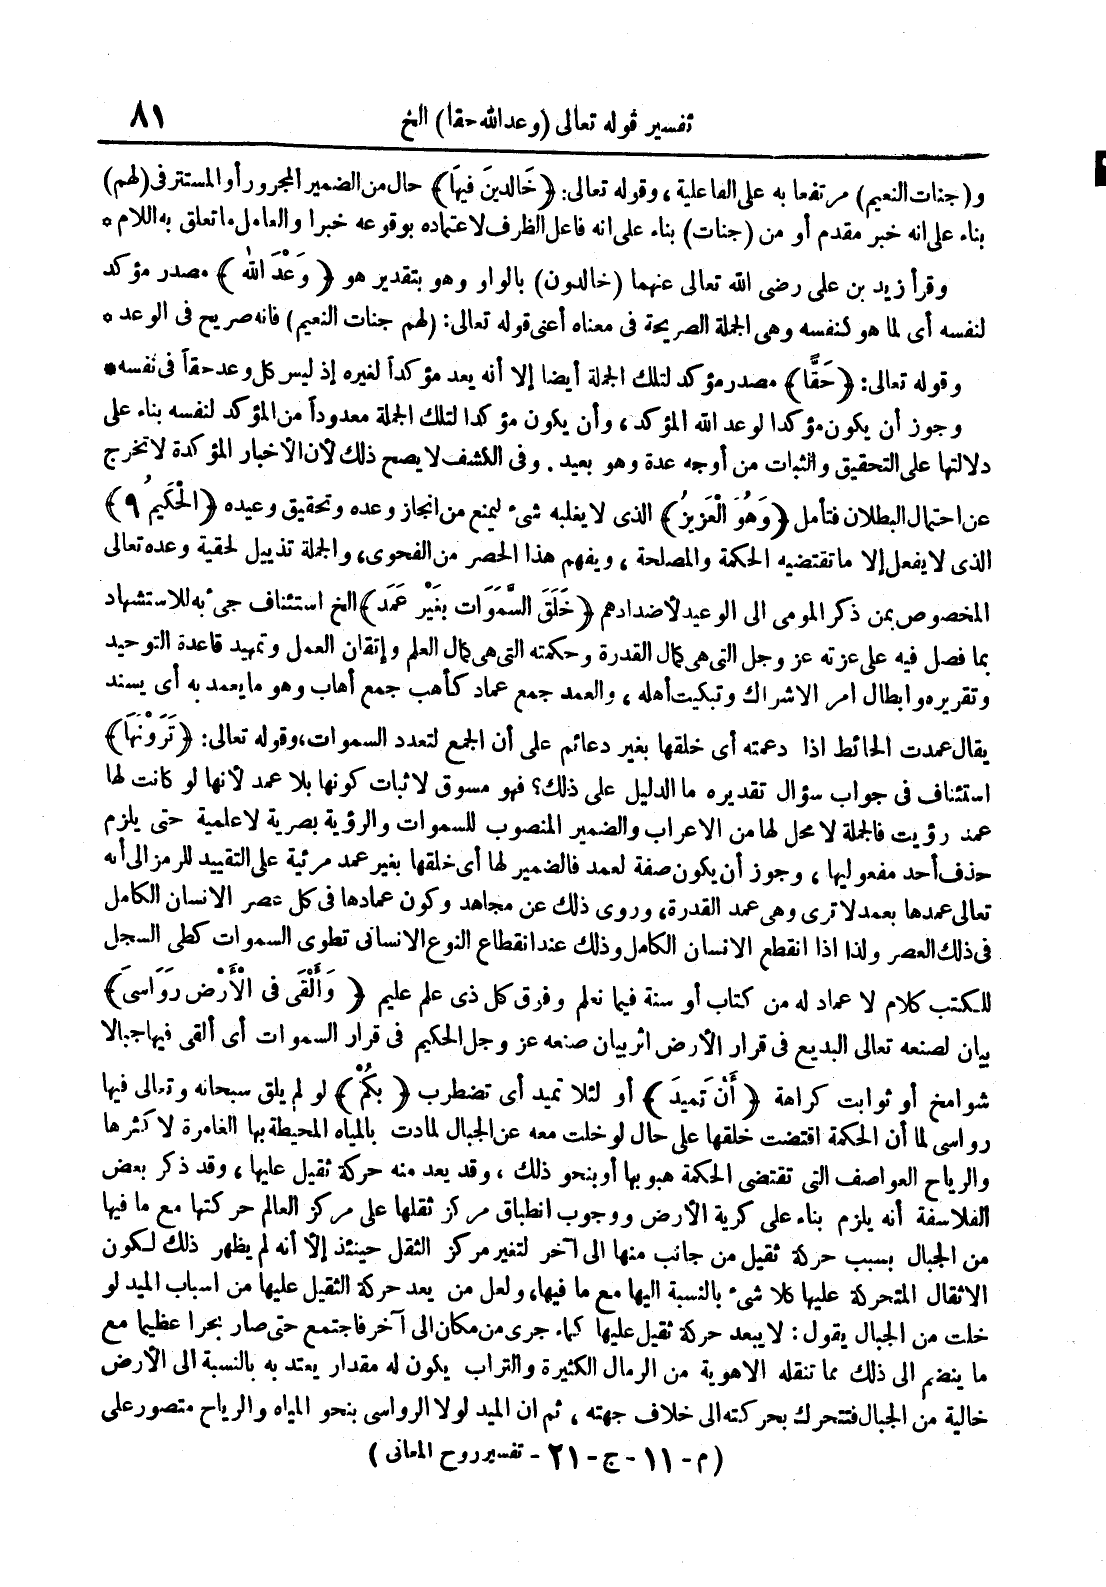 تفسير قوله تعالى (وعد الله حقا) الخ ٨١
و(جنات النعيم) مرتفعا به على الفاعلية، وقوله تعالى: ﴿خَالدينَ فيهَا﴾ حال من الضمير المجرور أو المستتر فى (لهم)
بناء على انه خبر مقدم أو من (جنات) بناء على انه فاعل الظرف لاعتماده بوقوعه خبرا والعامل ما تعلق به اللام *
وقرأ زيد بن على رضى الله تعالى عنهما (خالدون) بالواو وهو بتقدير هو ﴿وَعْدَ الله﴾ مصدر مؤكد
لنفسه أى لما هو كنفسه وهى الجملة الصريحة فى معناه أعنى قوله تعالى: (لهم جنات النعيم) فانه صريح فى الوعد *
وقوله تعالى: ﴿حَقًّا﴾ مصدر مؤكد لتلك الجملة أيضا إلا أنه يعد مؤكداً لغيره إذ ليس كل وعد حقاً فى نفسه *
وجوز أن يكون مؤكدا لوعد الله المؤكد، وأن يكون مؤكدا لتلك الجملة معدوداً من المؤكد لنفسه بناء على
دلالتها على التحقيق والثبات من أوجه عدة وهو بعيد. وفى الكشف لا يصح ذلك لأن الأخبار المؤكدة لا تخرج
عن احتمال البطلان فتأمل ﴿وَهُوَ الْعَزيزُ﴾ الذى لا يغلبه شىء ليمنع من انجاز وعده وتحقيق وعيده ﴿الْحَكيمُ ٩﴾
الذى لا يفعل إلا ما تقتضيه الحكمة والمصلحة، ويفهم هذا الحصر من الفحوى، والجملة تذييل لحقية وعده تعالى
المخصوص بمن ذكر المومى الى الوعيد لأضدادهم ﴿خَلَقَ السَّمَوَات بغَيْر عَمَد﴾ الخ استئناف جىء به للاستشهاد
بما فصل فيه على عزته عز وجل التى هى كمال القدرة وحكمته التى هى كمال العلم وإتقان العمل وتمهيد قاعدة التوحيد
وتقريره وابطال امر الاشراك وتبكيت أهله، والعمد جمع عماد كأهب جمع أهاب وهو ما يعمد به أى يسند
يقال عمدت الحائط اذا دعمته أى خلقها بغير دعائم على أن الجمع لتعدد السموات، وقوله تعالى: ﴿تَرَوْنَهَا﴾
استئناف فى جواب سؤال تقديره ما الدليل على ذلك؟ فهو مسوق لاثبات كونها بلا عمد لأنها لو كانت لها
عمد رؤيت فالجملة لا محل لها من الاعراب والضمير المنصوب للسموات والرؤية بصرية لا علمية حتى يلزم
حذف أحد مفعوليها، وجوز أن يكون صفة لعمد فالضمير لها أى خلقها بغير عمد مرئية على التقييد للرمز الى أنه
تعالى عمدها بعمد لا ترى وهى عمد القدرة، وروى ذلك عن مجاهد وكون عمادها فى كل عصر الانسان الكامل
فى ذلك العصر ولذا اذا انقطع الانسان الكامل وذلك عند انقطاع النوع الانسانى تطوى السموات كطى السجل
للكتب كلام لا عماد له من كتاب أو سنة فيما نعلم وفوق كل ذى علم عليم ﴿وَأَلْقَى فى الْأَرْض رَوَاسىَ﴾
بيان لصنعه تعالى البديع فى قرار الأرض اثر بيان صنعه عز وجل الحكيم فى قرار السموات أى ألقى فيها جبالا
شوامخ أو ثوابت كراهة ﴿أَنْ تَميدَ﴾ أو لئلا تميد أى تضطرب ﴿بكُمْ﴾ لو لم يلق سبحانه وتعالى فيها
رواسى لما أن الحكمة اقتضت خلقها على حال لو خلت معه عن الجبال لمادت بالمياه المحيطة بها الغامرة لاكثرها
والرياح العواصف التى تقتضى الحكمة هبوبها أو بنحو ذلك، وقد يعد منه حركة ثقيل عليها، وقد ذكر بعض
الفلاسفة أنه يلزم بناء على كرية الأرض ووجوب انطباق مركز ثقلها على مركز العالم حركتها مع ما فيها
من الجبال بسبب حركة ثقيل من جانب منها الى آخر لتغير مركز الثقل حينئذ إلا أنه لم يظهر ذلك لكون
الاثقال المتحركة عليها كلا شىء بالنسبة اليها مع ما فيها، ولعل من يعد حركة الثقيل عليها من اسباب الميد لو
خلت من الجبال يقول: لا يبعد حركة ثقيل عليها كماء جرى من مكان الى آخر فاجتمع حتى صار بحرا عظيما مع
ما ينضم الى ذلك مما تنقله الاهوية من الرمال الكثيرة والتراب يكون له مقدار يعتد به بالنسبة الى الأرض
خالية من الجبال فتتحرك بحركته الى خلاف جهته، ثم ان الميد لولا الرواسى بنحو المياه والرياح متصور على
(م - ١١ - ج - ٢١ - تفسير روح المعانى)